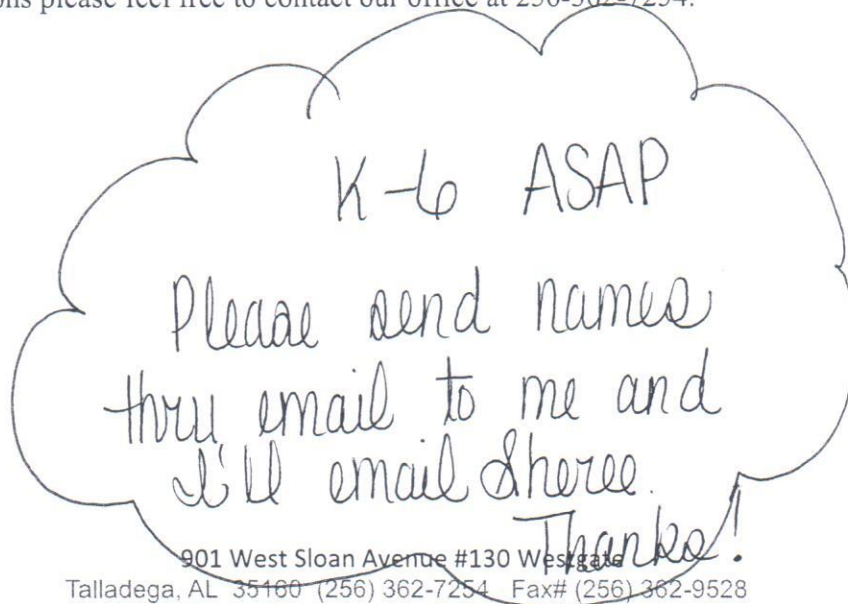 ons please feel free to contact our office at 256-362-7254.
K-6 ASAP
Please send names
thru email to me and
I'll email Sheree.
Thanks!
901 West Sloan Avenue #130 Westgate
Talladega, AL 35160 (256) 362-7254 Fax# (256) 362-9528